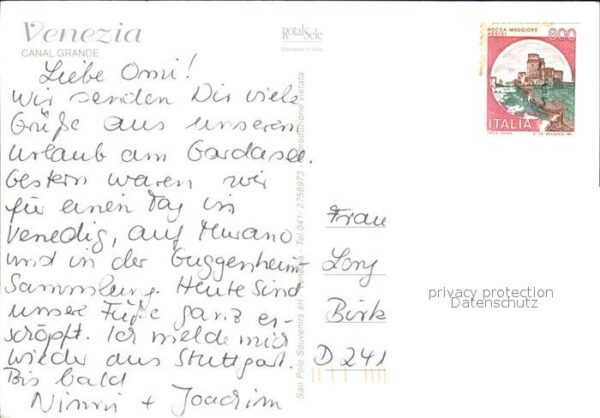 Venezia
CANAL GRANDE
RotalSele
Stampato in Italia
ROCCA MAGGIORE
ASSISI
800
ITALIA
Liebe Omi!
Wir senden Dir viele
Grüße aus unserem
Urlaub am Gardasee.
Gestern waren wir
für einen Tag in
Venedig, auf Murano
und in der Guggenheim-
Sammlung. Heute sind
unsere Füße ganz er-
schöpft. Ich melde mich
wieder aus Stuttgart.
Bis bald
+ Joachim
San Polo Souvenirs srl
Tel. 041/ 2758973
riproduzione vietata
Frau
Lony
Birk
D 241
privacy protection
Datenschutz